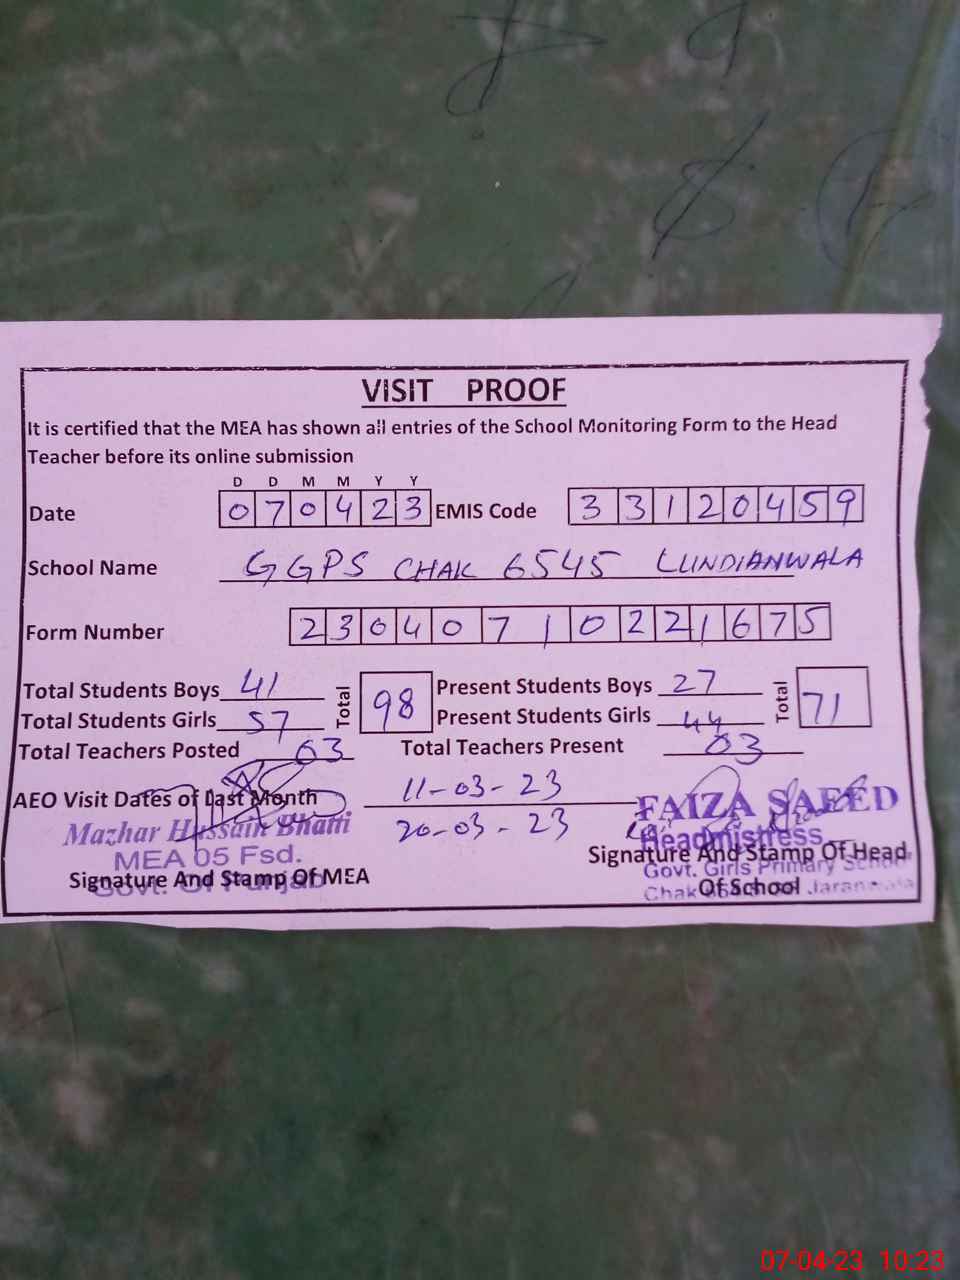 VISIT PROOF
It is certified that the MEA has shown all entries of the School Monitoring Form to the Head
Teacher before its online submission
D D M M Y Y
Date 070423 EMIS Code 33120459
School Name GGPS CHAK 6545 LUNDIANWALA
Form Number 23040710221675
Total Students Boys 41 Total 98 Present Students Boys 27 Total 71
Total Students Girls 57 Present Students Girls 44
Total Teachers Posted 03 Total Teachers Present 03
AEO Visit Dates of Last Month 11-03-23
20-03-23
Mazhar Hussain Bhatti
MEA 05 Fsd.
Govt. Of Punjab
Signature And Stamp Of MEA
FAIZA SAEED
Headmistress
Signature And Stamp Of Head
Govt. Girls Primary School
Of School
Chak Jaranwala
07-04-23 10:23